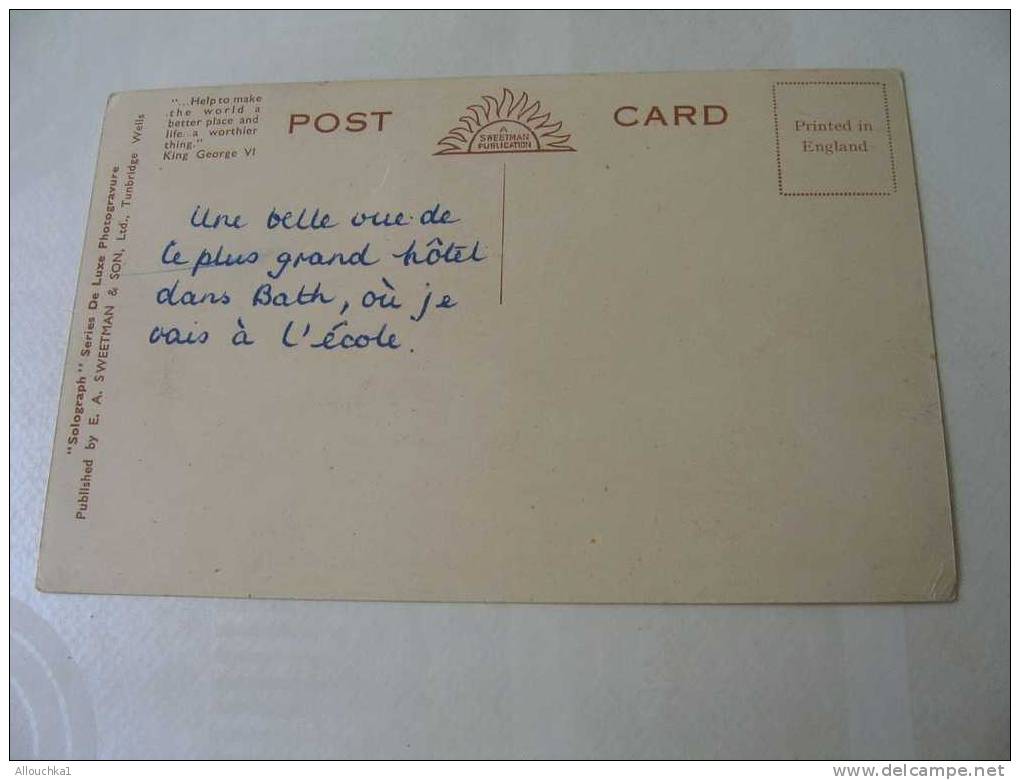 "...Help to make
the world a
better place and
life a worthier
thing."
King George VI
POST
CARD
A
SWEETMAN
PUBLICATION
Printed in
England
"Solograph" Series De Luxe Photogravure
Published by E. A. SWEETMAN & SON, Ltd., Tunbridge Wells
Une belle vue de
le plus grand hôtel
dans Bath, où je
vais à l'école.
Allouchka1
http://www.delcampe.net